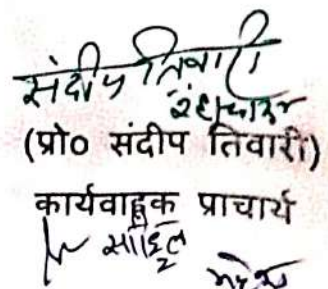 संदीप तिवारी
(प्रो० संदीप तिवारी)
कार्यवाहक प्राचार्य
साहिल